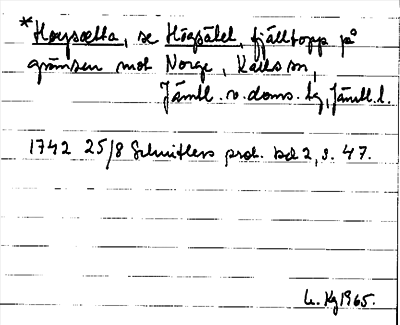 *Høysætta, se Högsätet, fjälltopp på
gränsen mot Norge, Kalls sn,
Jämtl. v. doms. tg, Jämtl. l.
1742 25/8 Schnitlers prot. bd 2, s. 47.
L. Hg 1965.